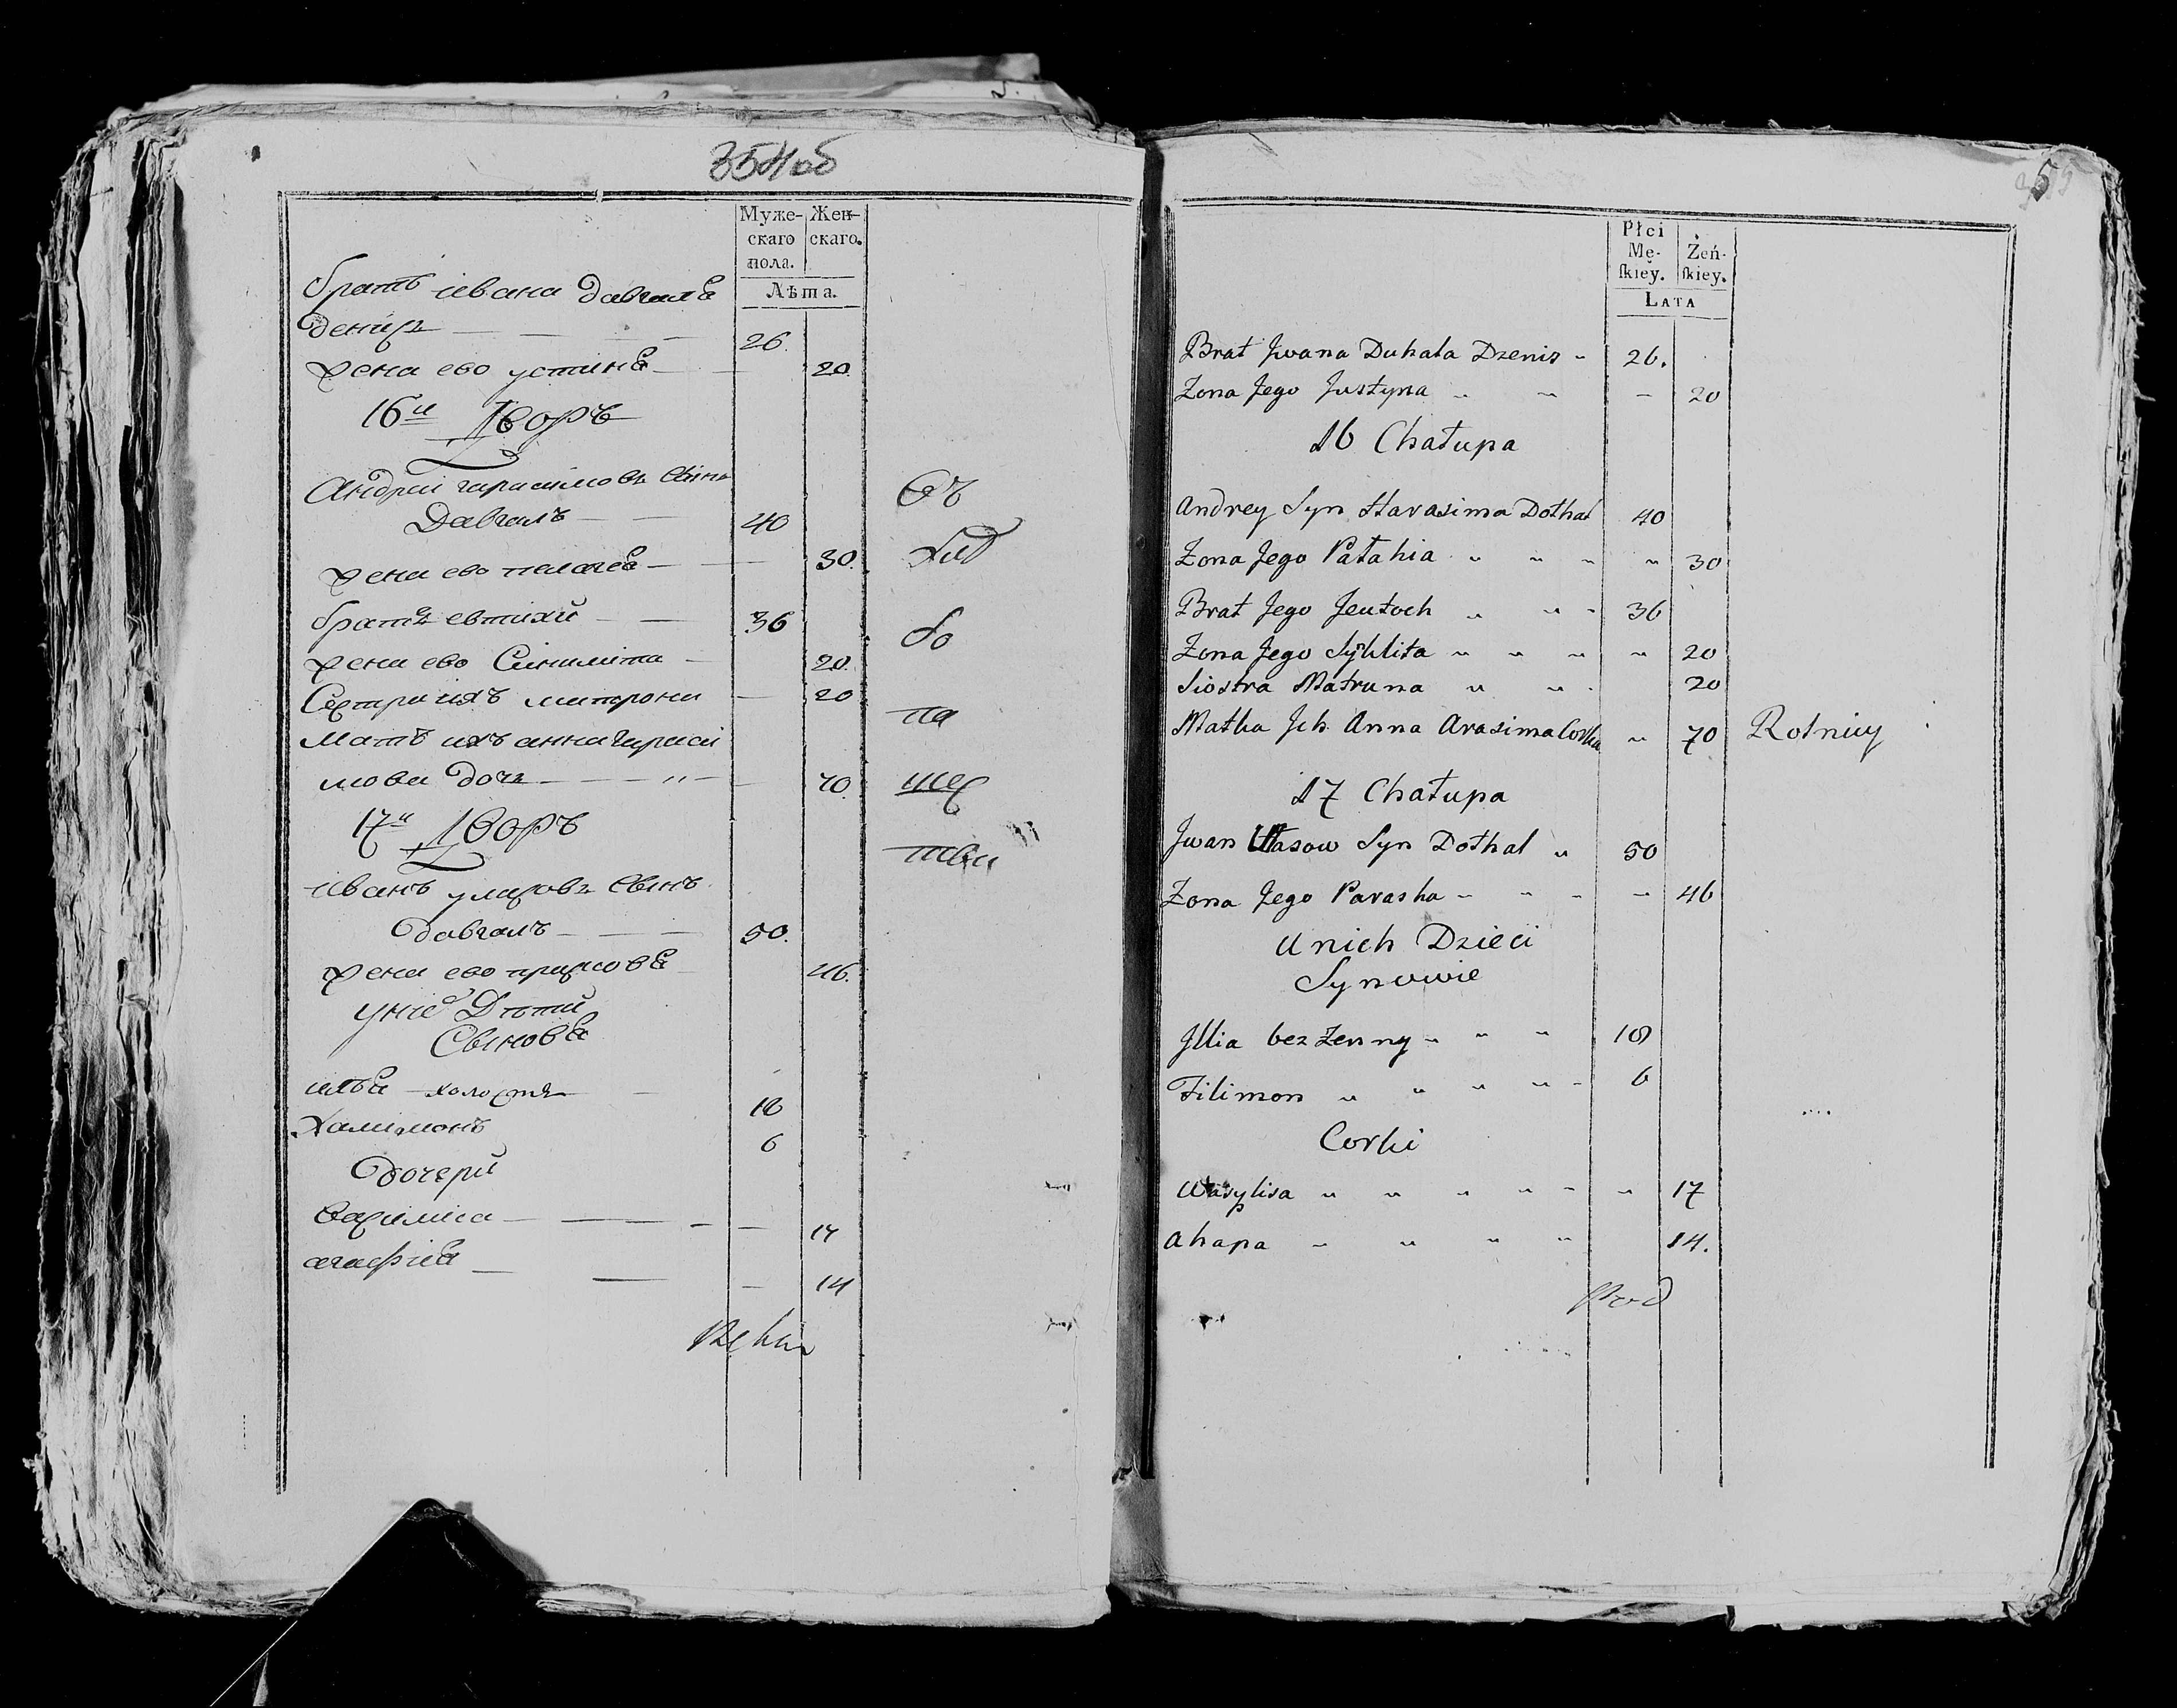 354об
Муже-
скаго
пола.
Жен-
скаго.
Лѣта.
братъ ивана давгалѣ
денисъ — — — 26.
жена ево устинѣ — — 20
16й Дворъ
Андрей гарасимовъ сынъ
Давгалъ — — 40
жена ево пелагеѣ — — 30.
братъ евтихй — — 36
жена ево Синклита — 20.
Сестра ихъ матрона — 20
мать ихъ анна гараси
мова дочь — — — 70
17й Дворъ
иванъ сынъ
давгалъ — — — 50.
жена ево 46.
у ние Дѣти
Сынове
илѣа — холостъ — 18
Халимонъ 6
Дочери
Василиса — — — — — 17
агафиѣ — — — 14
Въ
тва
Płci
Mę-
skiey.
Żeń-
skiey.
LATA
Brat Jwana Duhala Dzenis " 26.
Zona Jego Justyna " " – 20
16 Chałupa
Andrey Syn Harasima Dothal 40
Zona Jego Pałahia " " " " 30
Brat Jego Jeutoch " " - 36
Zona Jego Syklita " " " " 20
Siostra Matruna " " . 20
Matka Jch Anna Arasima Corka " 70 Rolnicy
17 Chałupa
Jwan Ułasow Syn Dothal " 50
Zona Jego Paraska - " - – 46
U nich Dzieci
Synowie
Jllia bez Zenny " " " 18
Filimon " " " " - 6
Corki
Wasylisa " " " " - " 17
Ahapa " " " " 14.